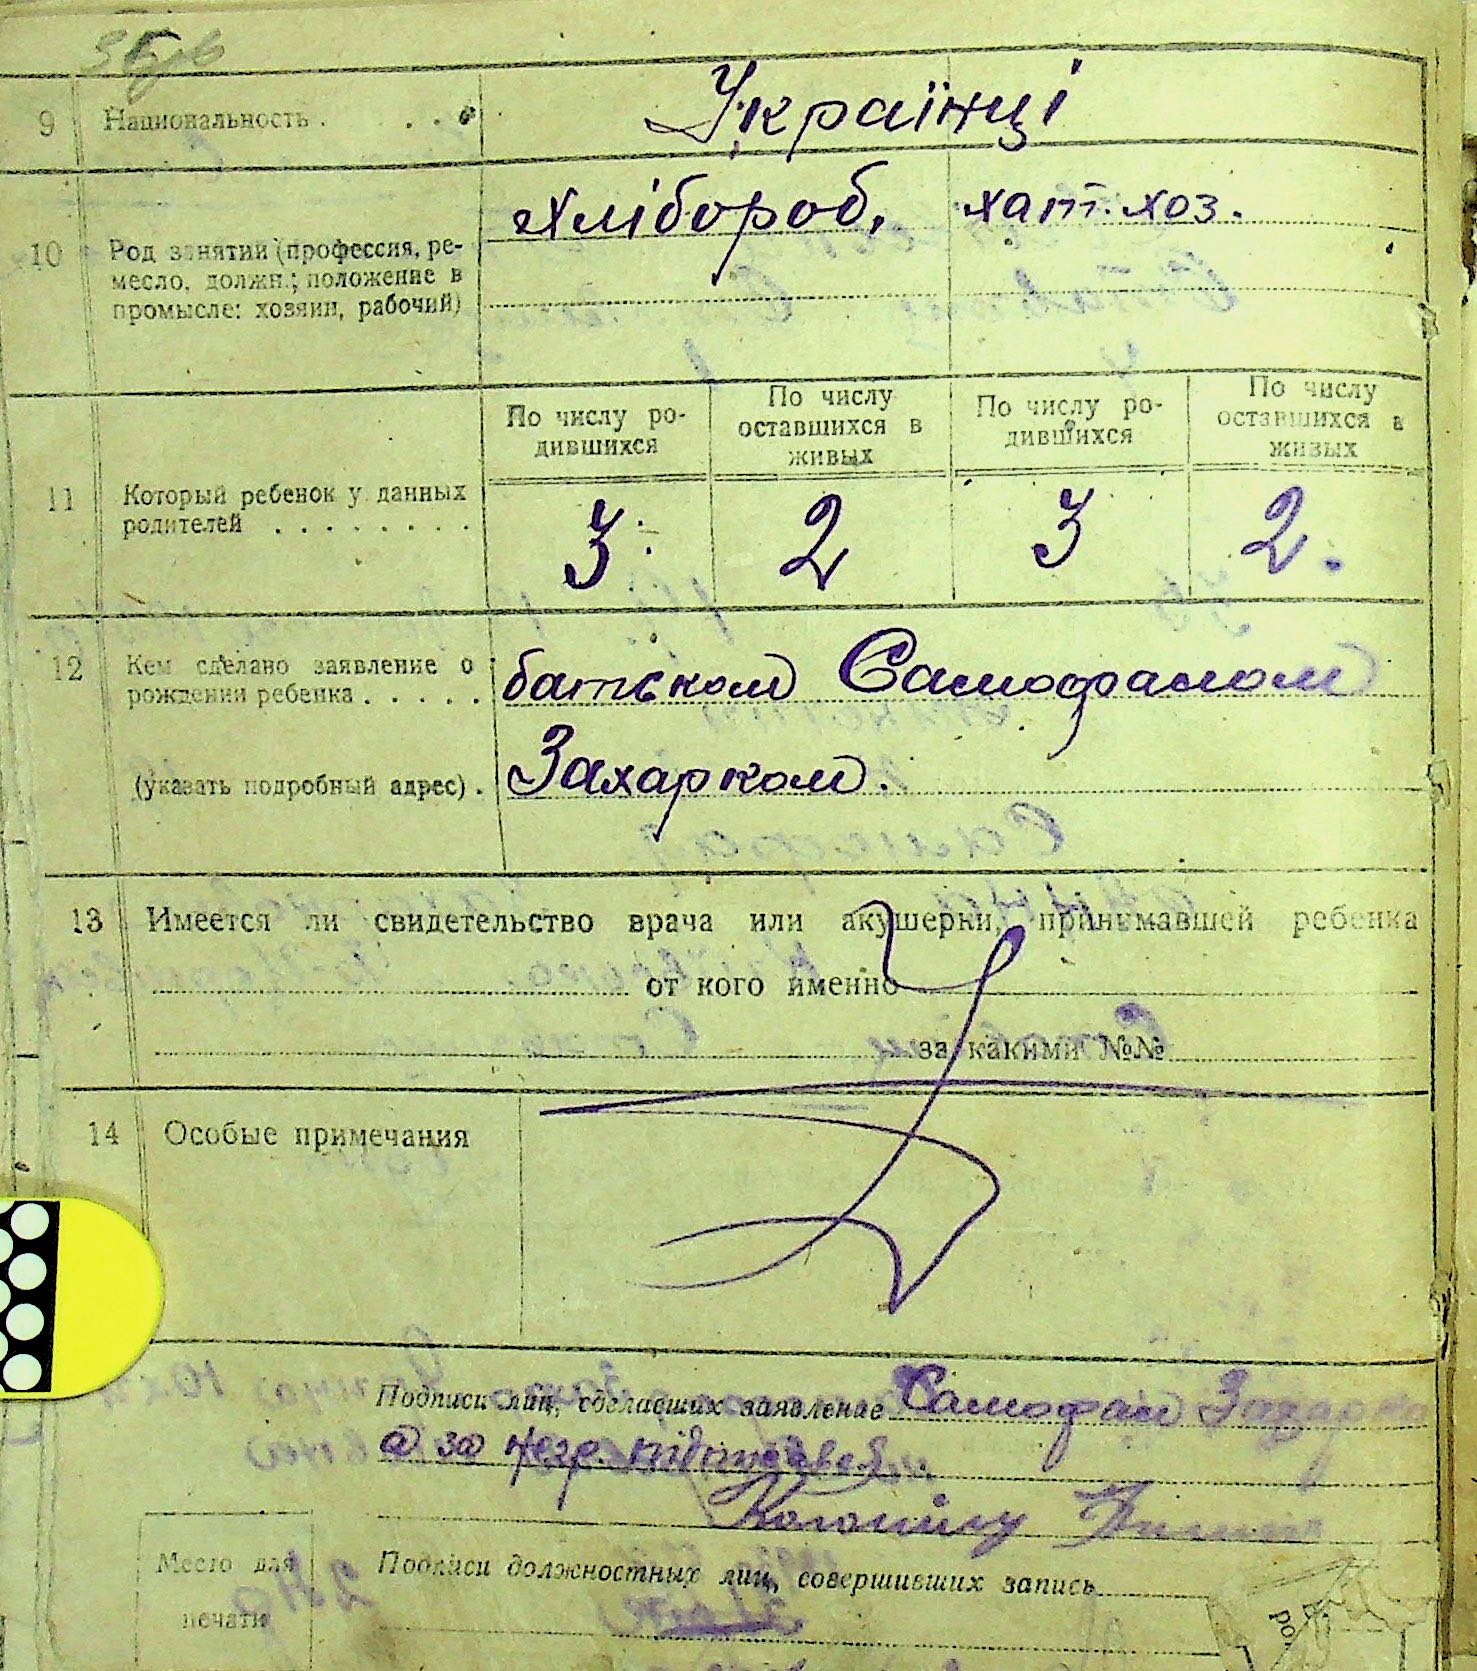 9 Национальность . . . . Українці
10 Род занятий (профессия, ре-
месло, должн.; положение в
промысле: хозяин, рабочий)
хлібороб, хат. хоз.
По числу ро-
дившихся
По числу
оставшихся в
живых
По числу ро-
дившихся
По числу
оставшихся в
живых
11 Который ребенок у данных
родителей . . . . . . . .
3 2 3 2.
12 Кем сделано заявление о
рождении ребенка . . . . .
батьком Самофалом
(указать подробный адрес) .
Захарком.
13 Имеется ли свидетельство врача или акушерки, принимавшей ребенка
от кого именно
за какими №№
14 Особые примечания
Подписи лиц, сделавших заявление Самофал Захарко
а за негр.
Место для
печати
Подписи должностных лиц, совершивших запись